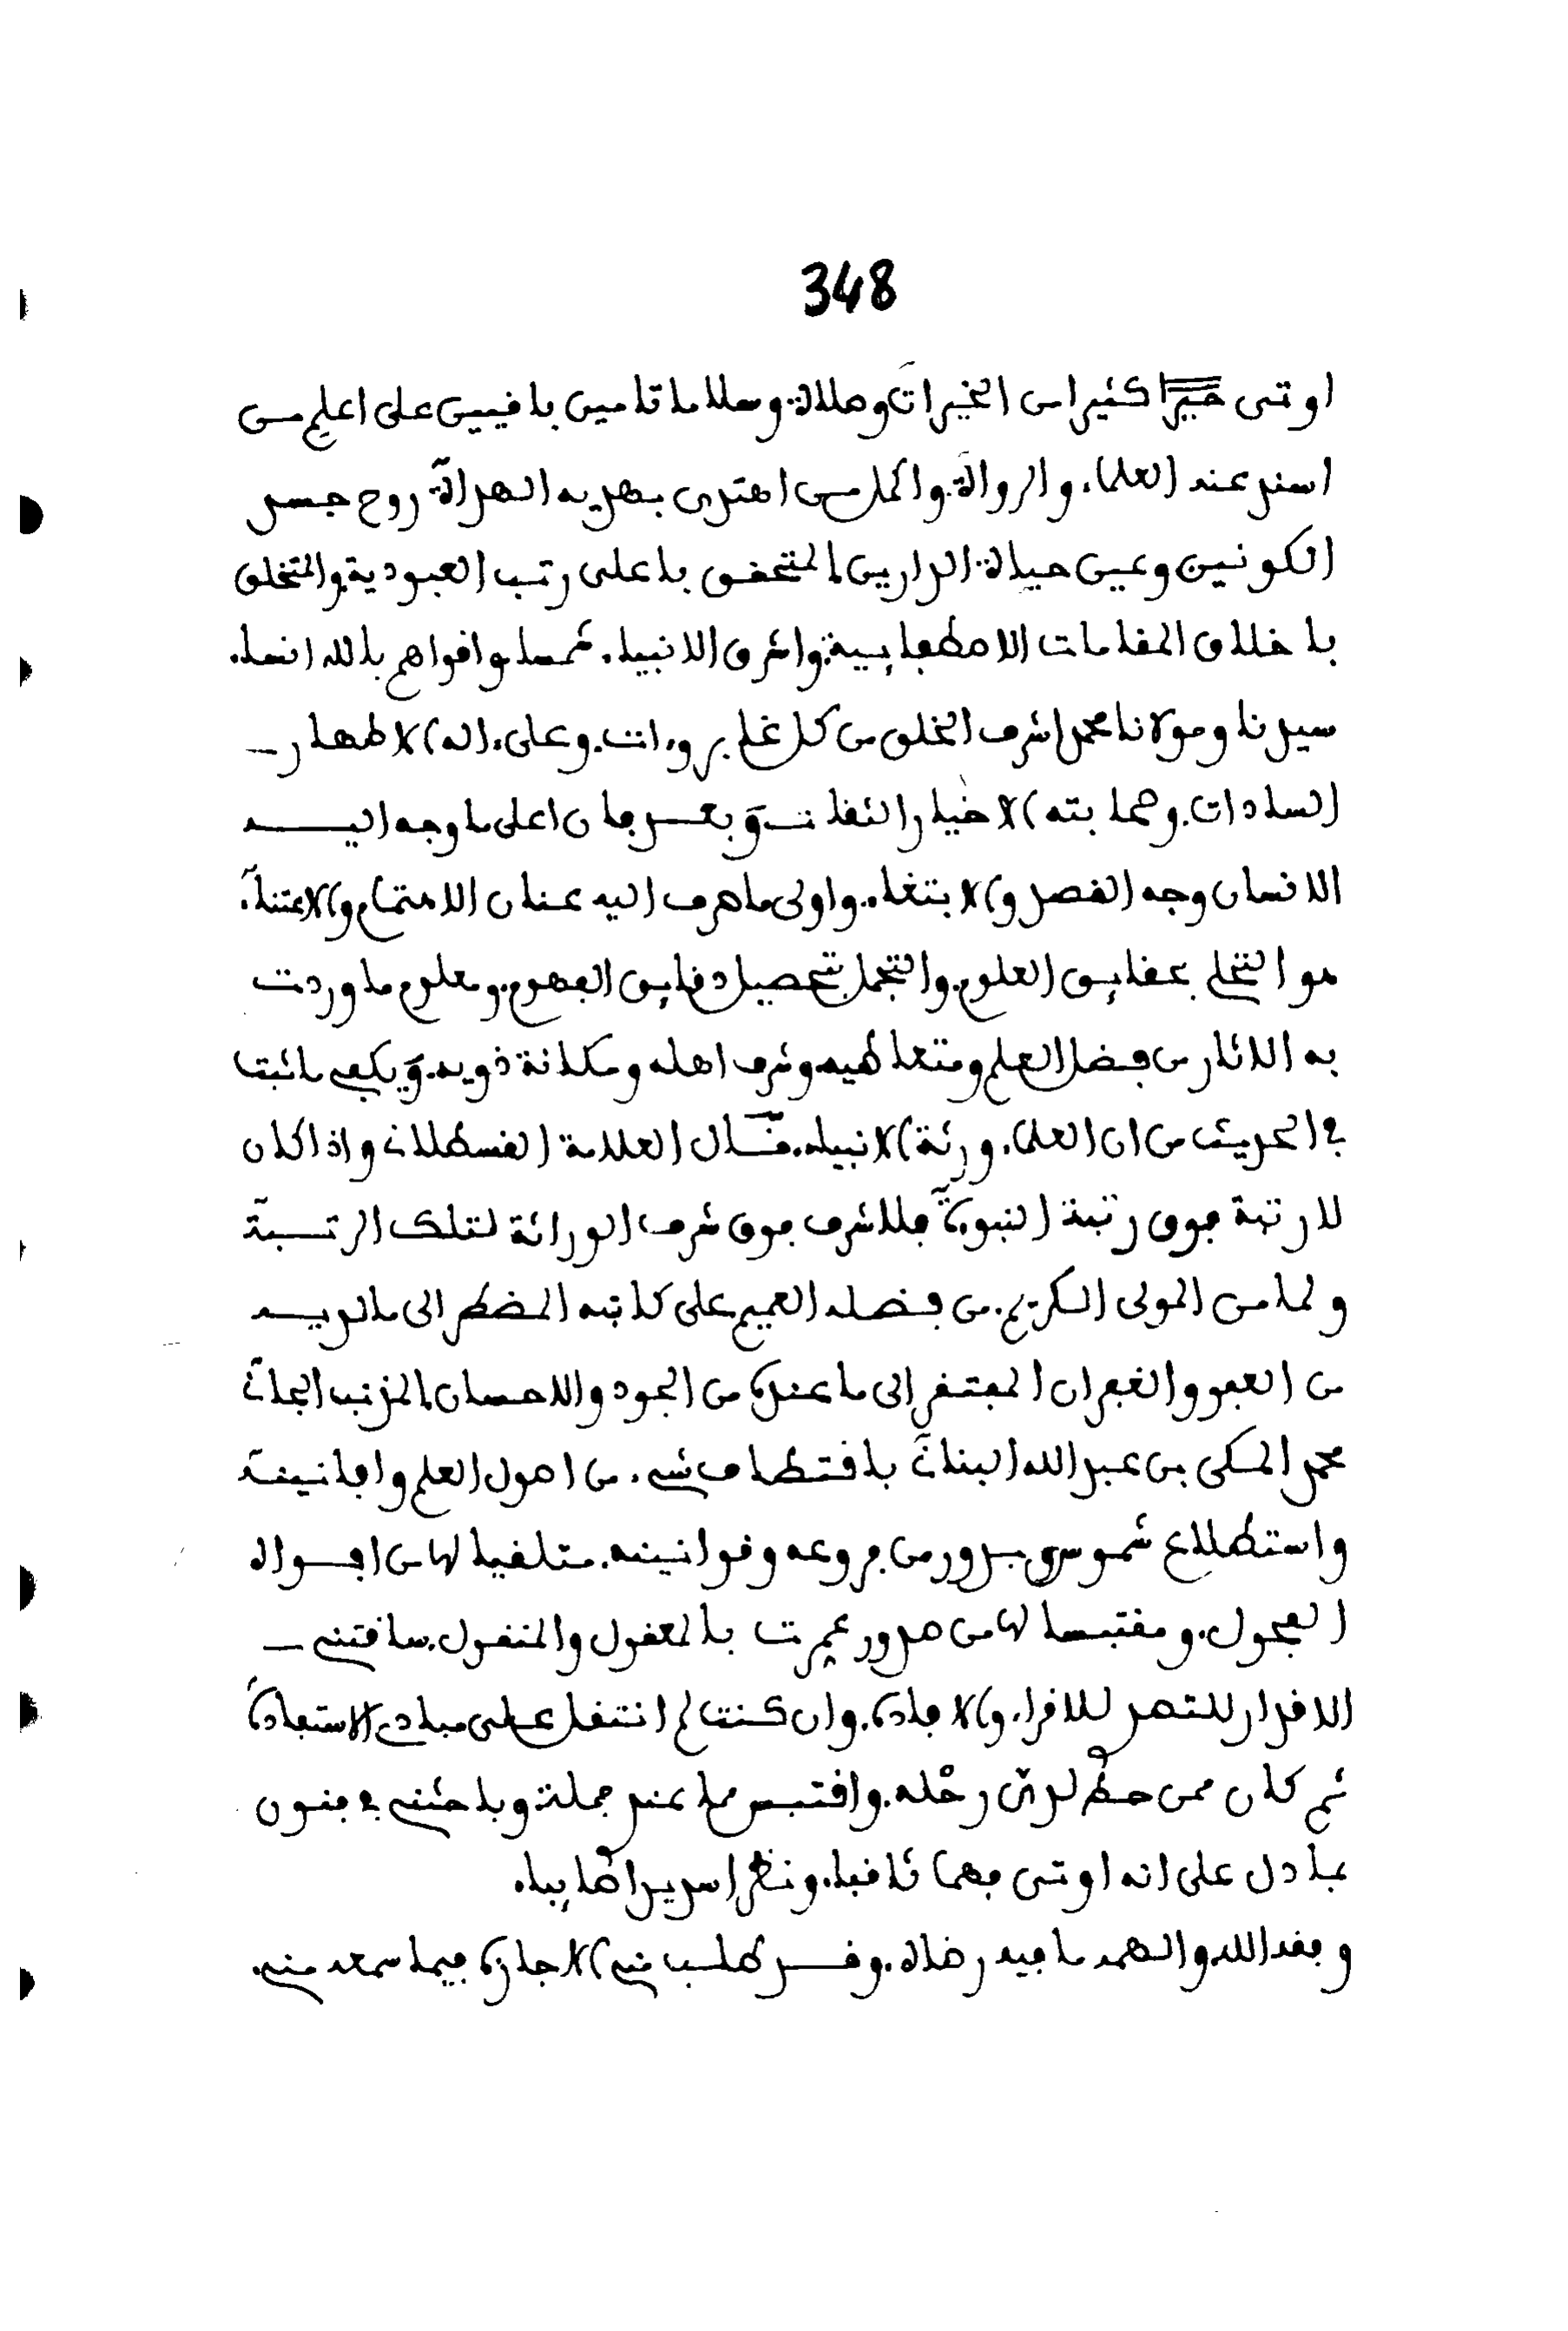 348
اوتى خيرا كثيرا من الخيرات وصلاة وسلاما تامين باقيين على اعلم من
اسند عنه العلماء والرواة واكمل من اهتدى بهديه الهداة روح جسد
الكونين وعين حياة الدارين المتحقق باعلى رتب العبودية والمتخلق
باخلاق المقامات الاصطفايية واشرق الانبياء شمسا واقواهم بالله انسا
سيدنا ومولانا محمد اشرف الخلق من كل غابر وءات وعلى ءاله الاطهار
السادات وصحابته الاخيار الثقات وبعد فان اعلى ما وجه اليه
الانسان وجه القصد والابتغاء واولى ما صرف اليه عنان الاهتمام والاعتناء
هو التخلي بحقايق العلوم والتجمل بتحصيل دقايق الفهوم ومعلوم ما وردت
به الاثار من فضل العلم ومتعاطيه وشرف اهله ومكانة ذويه ويكفي ما ثبت
في الحديث من ان العلماء ورثة الانبياء قال العلامة القسطلاني واذا كان
لا رتبة فوق رتبة النبوة فلا شرف فوق شرف الوراثة لتلك الرتبة
ولما من المولى الكريم من فضله العميم على كاتبه المضطر الى ما لديه
من العفو والغفران المفتقر الى ما عنده من الجود والاحسان المذنب الجاني
محمد المكي بن عبد الله البناني باقتطاف شيء من اصول العلم وافانينه
واستطلاع شموس وبدور من فروعه وقوانينه متلقيا لها من افواه
الفحول ومقتبسا لها من صدور عمرت بالمعقول والمنقول ساقتني
الاقدار للتصدر للاقراء والافادة وان كنت لم انتقل على مبادي الاستفادة
ثم كان ممن حط لدي رحله واقتبس مما عندي جملة وباحثني في فنون
بما دل على انه اوتي فهما ثاقبا ونظرا سديدا صايبا
وفقه الله والهمه ما فيه رضاه وقد طلب مني الاجازة فيما سمعه مني